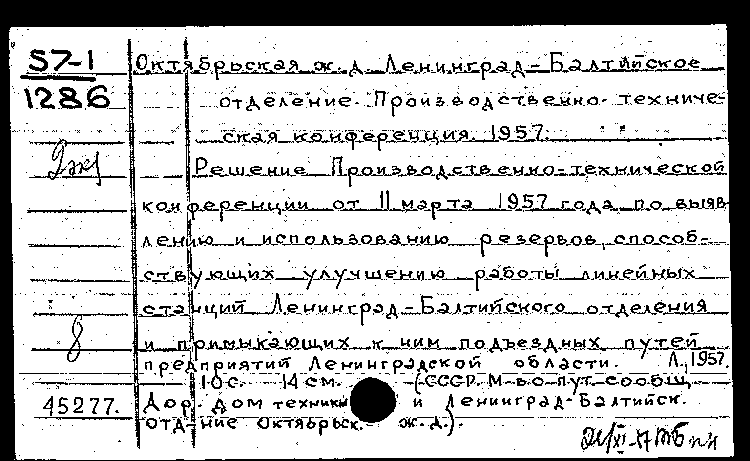 57-1
1286
2экз
8
45277.
Октябрьская ж. д. Ленинград-Балтийское
отделение. Производственно-техниче-
ская конференция. 1957.
Решение Производственно-технической
конференции от 11 марта 1957 года по выяв-
лению и использованию резервов, способ-
ствующих улучшению работы линейных
станций Ленинград-Балтийского отделения
и примыкающих к ним подъездных путей
предприятий Ленинградской области. Л., 1957.
10 с. 14 см. (СССР. М-во пут. сообщ.
Дор. дом техники и Ленинград-Балтийск.
отд-ние Октябрьск. ж. д.).